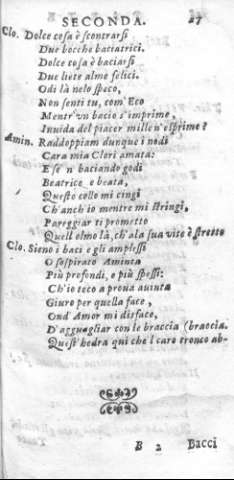 SECONDA. 27
Clo. Dolce cosa è scontrarsi
Due bocche baciatrici.
Dolce cosa è baciarsi
Due liete alme felici.
Odi là nelo speco,
Non senti tu, com'Eco
Mentr'vn bacio s'imprime,
Inuida del piacer mille n'esprime?
Amin. Raddoppiam dunque i nodi
Cara mia Clori amata:
E se n baciando godi
Beatrice e beata,
Questo collo mi cingi
Ch'anch'io mentre mi stringi,
Pareggiar ti prometto
Quell olmo là, ch'ala sua vite è stretto
Clo. Sieno i baci e gli amplessi
O sospirato Aminta
Più profondi, e più spessi:
Ch'io teco a proua auinta
Giuro per quella face,
Ond'Amor mi disface,
D'agguagliar con le braccia (braccia.
Quest'hedra qui che'l caro tronco ab-
B 2 Bacci